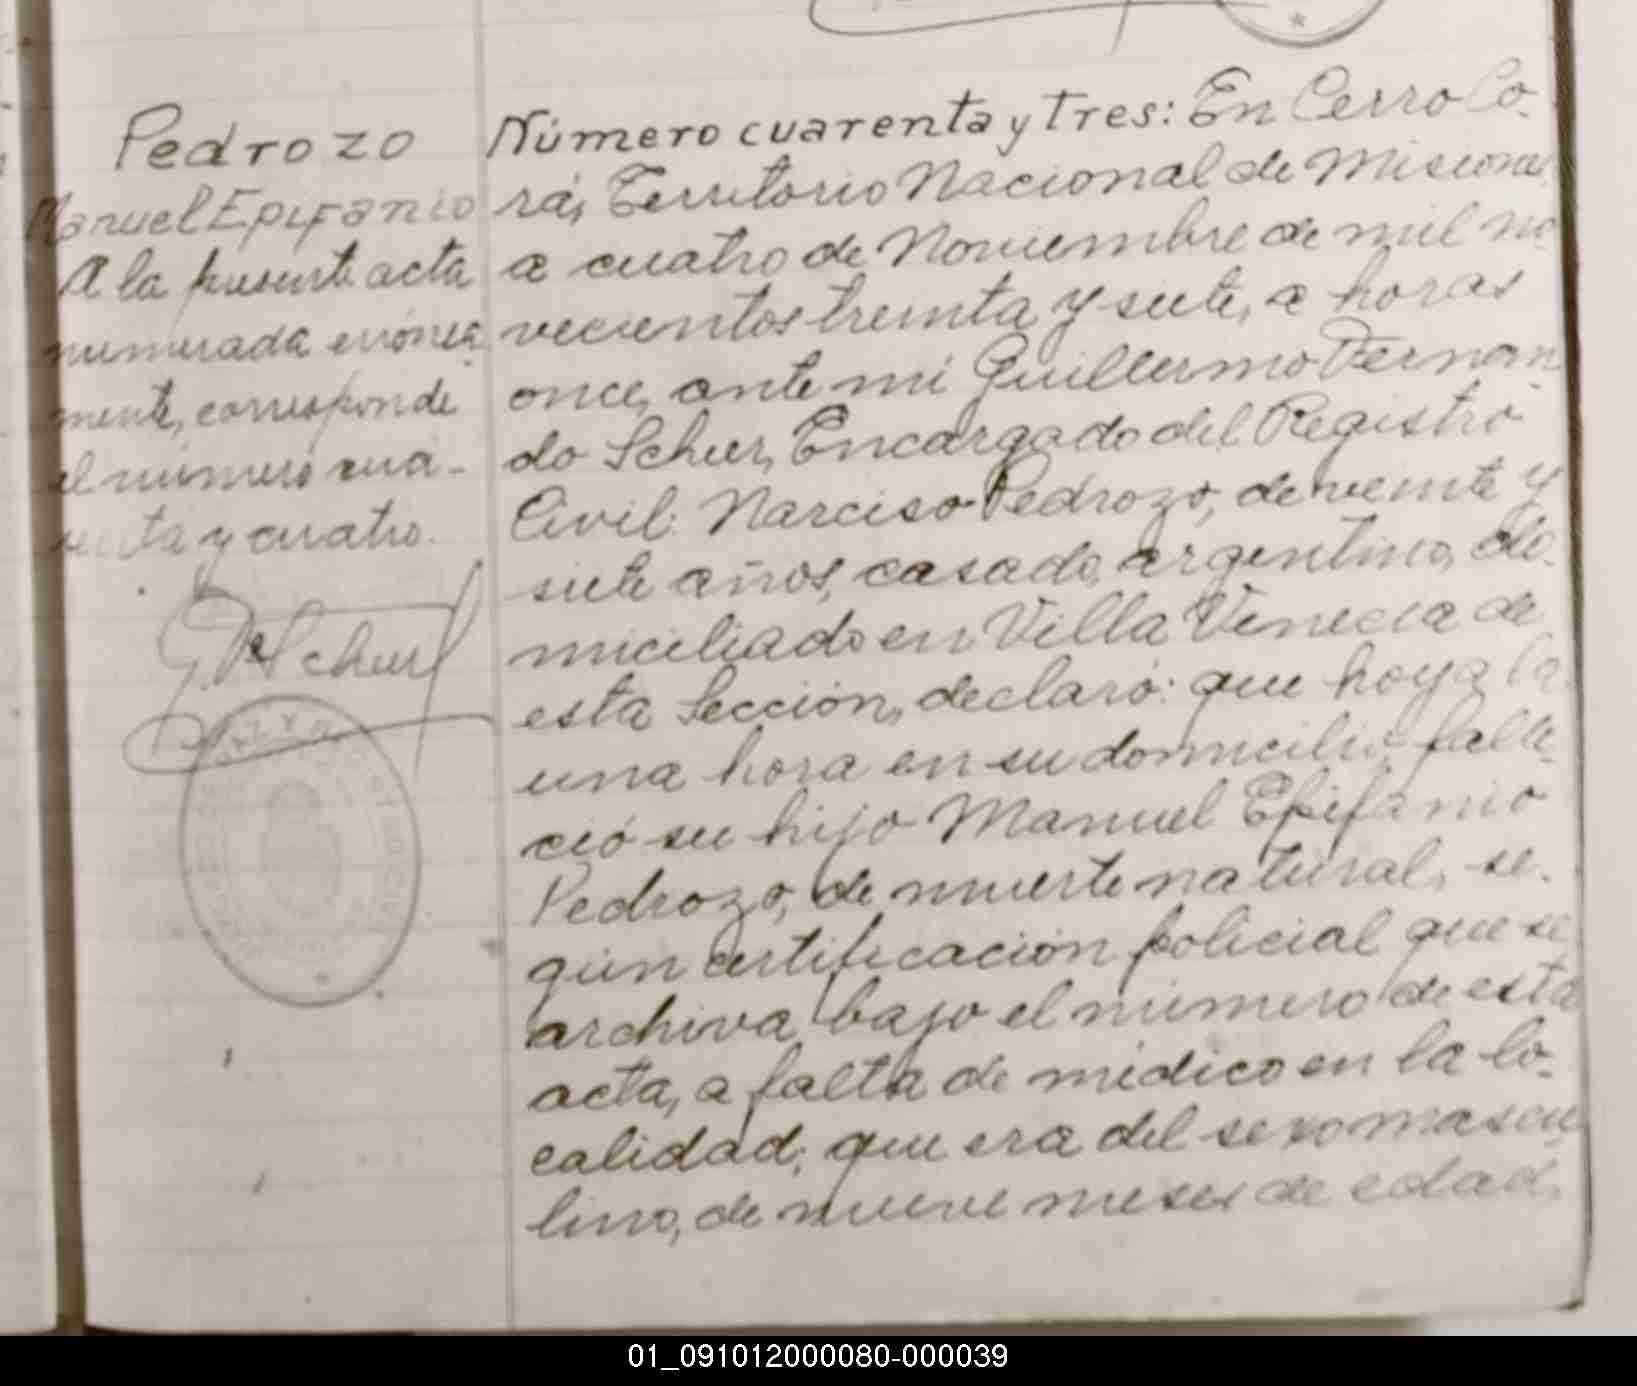 Pedrozo
Manuel Epifanio
A la presente acta
numerada errónea
mente, corresponde
el número cua-
renta y cuatro.
G F Scheer
Número cuarenta y tres: En Cerro Co-
rá, Territorio Nacional de Misiones
a cuatro de Noviembre de mil no
vecientos treinta y siete, a horas
once, ante mi Guillermo Fernan
do Scheer, Encargado del Registro
Civil: Narciso Pedrozo, de veinte y
siete años, casado, argentino, do-
miciliado en Villa Venecia de
esta Sección, declaró: que hoy a la
una hora en su domicilio falle-
ció su hijo Manuel Epifanio
Pedrozo, de muerte natural, se-
gún certificación policial que se
archiva bajo el número de esta
acta, a falta de médico en la lo-
calidad; que era del sexo mascu
lino, de nueve meses de edad,
01_091012000080-000039